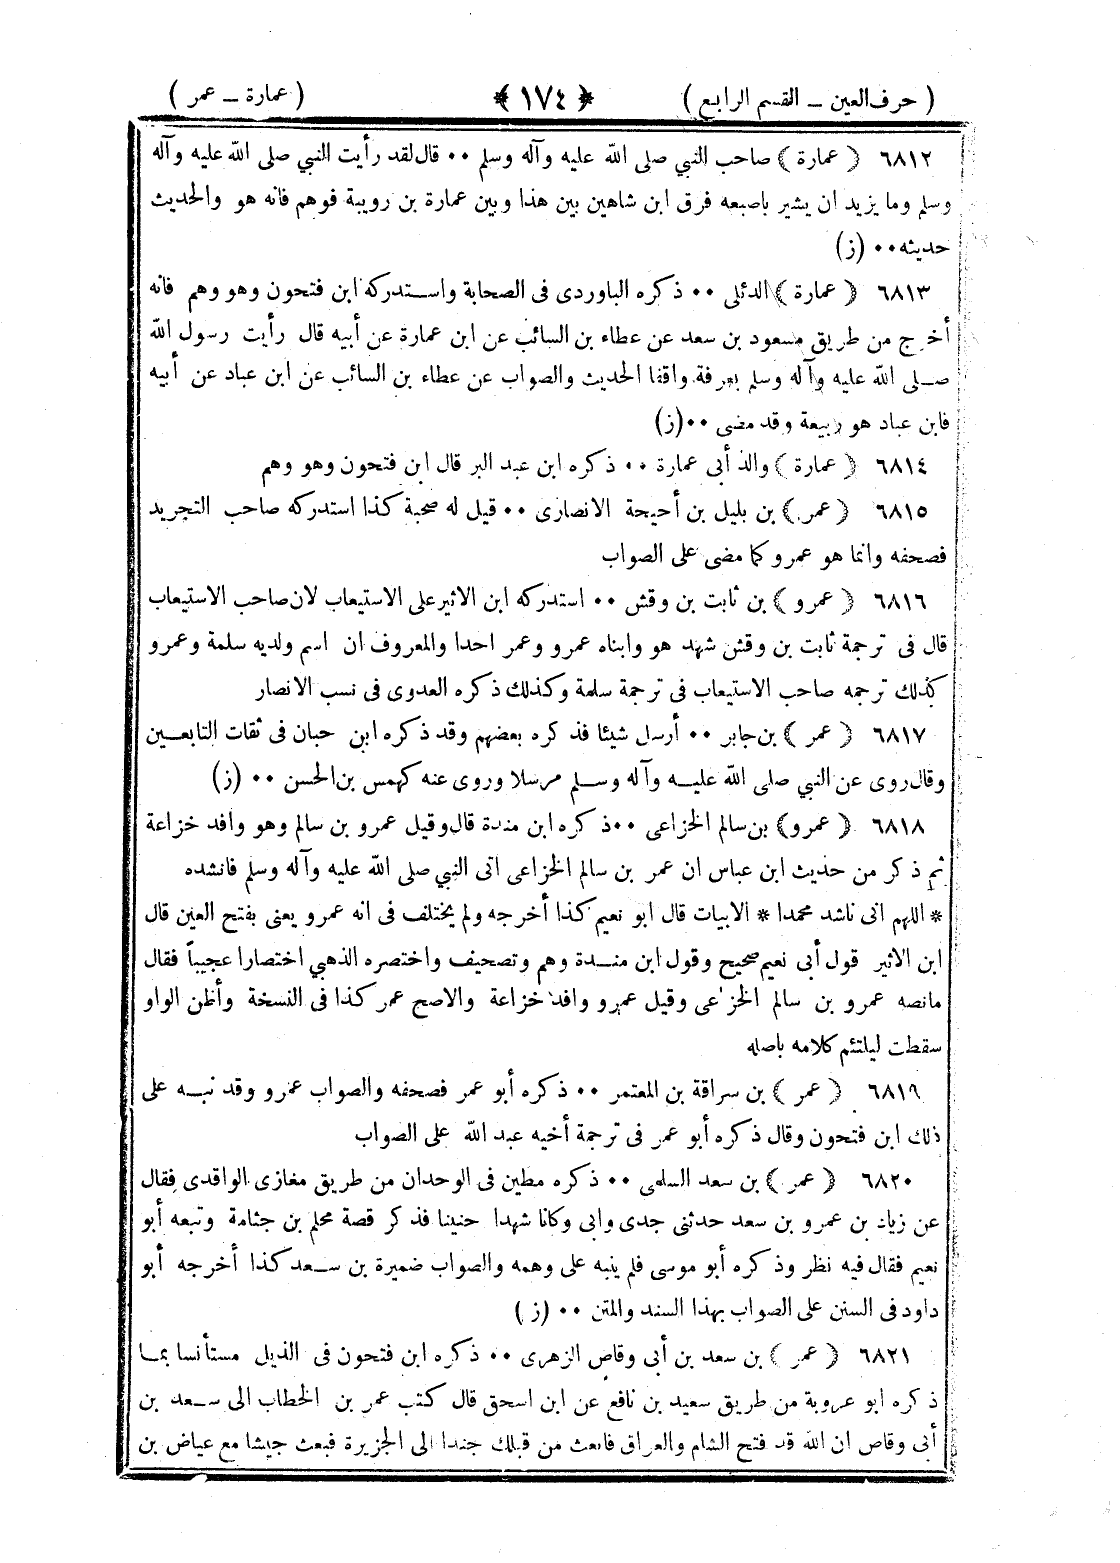 ( حرف العين – القسم الرابع )
﴿ ١٧٤ ﴾
( عمارة – عمر )
٦٨١٢ ﴿ عمارة ﴾ صاحب النبي صلى الله عليه وآله وسلم ٠٠ قال لقد رأيت النبي صلى الله عليه وآله
وسلم وما يزيد ان يشير باصبعه فرق ابن شاهين بين هذا وبين عمارة بن رويبة فوهم فانه هو والحديث
حديثه ٠٠ (ز)
٦٨١٣ ﴿ عمارة ﴾ الدئلى ٠٠ ذكره الباوردى فى الصحابة واستدركه ابن فتحون وهو وهم فانه
أخرج من طريق مسعود بن سعد عن عطاء بن السائب عن ابن عمارة عن أبيه قال رأيت رسول الله
صلى الله عليه وآله وسلم بعرفة واقفا الحديث والصواب عن عطاء بن السائب عن ابن عباد عن أبيه
فابن عباد هو ربيعة وقد مضى ٠٠ (ز)
٦٨١٤ ﴿ عمارة ﴾ والد أبى عمارة ٠٠ ذكره ابن عبد البر قال ابن فتحون وهو وهم
٦٨١٥ ﴿ عمر ﴾ بن بليل بن أحيحة الانصارى ٠٠ قيل له صحبة كذا استدركه صاحب التجريد
فصحفه وانما هو عمرو كما مضى على الصواب
٦٨١٦ ﴿ عمرو ﴾ بن ثابت بن وقش ٠٠ استدركه ابن الاثير على الاستيعاب لان صاحب الاستيعاب
قال فى ترجمة ثابت بن وقش شهد هو وابناه عمرو وعمر احدا والمعروف ان اسم ولديه سلمة وعمرو
كذلك ترجمه صاحب الاستيعاب فى ترجمة سلمة وكذلك ذكره العدوى فى نسب الانصار
٦٨١٧ ﴿ عمر ﴾ بن جابر ٠٠ أرسل شيئا فذكره بعضهم وقد ذكره ابن حبان فى ثقات التابعين
وقال روى عن النبي صلى الله عليه وآله وسلم مرسلا وروى عنه كهمس بن الحسن ٠٠ (ز)
٦٨١٨ ﴿ عمرو ﴾ بن سالم الخزاعى ٠٠ ذكره ابن مندة قال وقيل عمرو بن سالم وهو وافد خزاعة
ثم ذكر من حديث ابن عباس ان عمر بن سالم الخزاعى اتى النبي صلى الله عليه وآله وسلم فانشده
* اللهم انى ناشد محمدا * الابيات قال ابو نعيم كذا أخرجه ولم يختلف فى انه عمرو يعنى بفتح العين قال
ابن الاثير قول أبى نعيم صحيح وقول ابن مندة وهم وتصحيف واختصره الذهبي اختصارا عجيباً فقال
مانصه عمرو بن سالم الخزاعى وقيل عمرو وافد خزاعة والاصح عمر كذا فى النسخة وأظن الواو
سقطت ليلتئم كلامه باصله
٦٨١٩ ﴿ عمر ﴾ بن سراقة بن المعتمر ٠٠ ذكره أبو عمر فصحفه والصواب عمرو وقد نبه على
ذلك ابن فتحون وقال ذكره أبو عمر فى ترجمة أخيه عبد الله على الصواب
٦٨٢٠ ﴿ عمر ﴾ بن سعد السلمى ٠٠ ذكره مطين فى الوحدان من طريق مغازى الواقدى فقال
عن زياد بن عمرو بن سعد حدثنى جدى وابى وكانا شهدا حنينا فذكر قصة محلم بن جثامة وتبعه أبو
نعيم فقال فيه نظر وذكره أبو موسى فلم ينبه على وهمه والصواب ضميرة بن سعد كذا أخرجه أبو
داود فى السنن على الصواب بهذا السند والمتن ٠٠ (ز)
٦٨٢١ ﴿ عمر ﴾ بن سعد بن أبى وقاص الزهرى ٠٠ ذكره ابن فتحون فى الذيل مستأنسا بما
ذكره ابو عروبة من طريق سعيد بن نافع عن ابن اسحق قال كتب عمر بن الخطاب الى سعد بن
أبى وقاص ان الله قد فتح الشام والعراق فابعث من قبلك جندا الى الجزيرة فبعث جيشا مع عياض بن